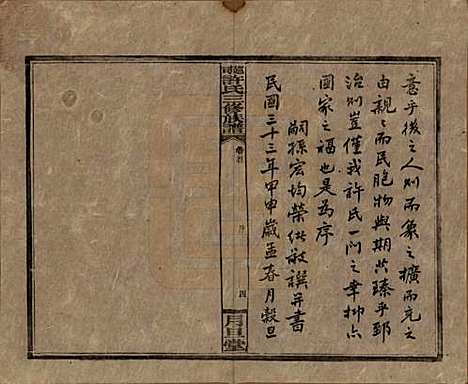 意乎後之人則而象之擴而充之
由親親而民胞物與期共臻乎郅
治則豈僅我許氏一門之幸抑亦
國家之福也是為序
嗣孫宏均榮 敬譔并書
民國三十三年甲申歲孟春月穀旦
許氏三修族譜
卷首
序
四
月旦堂